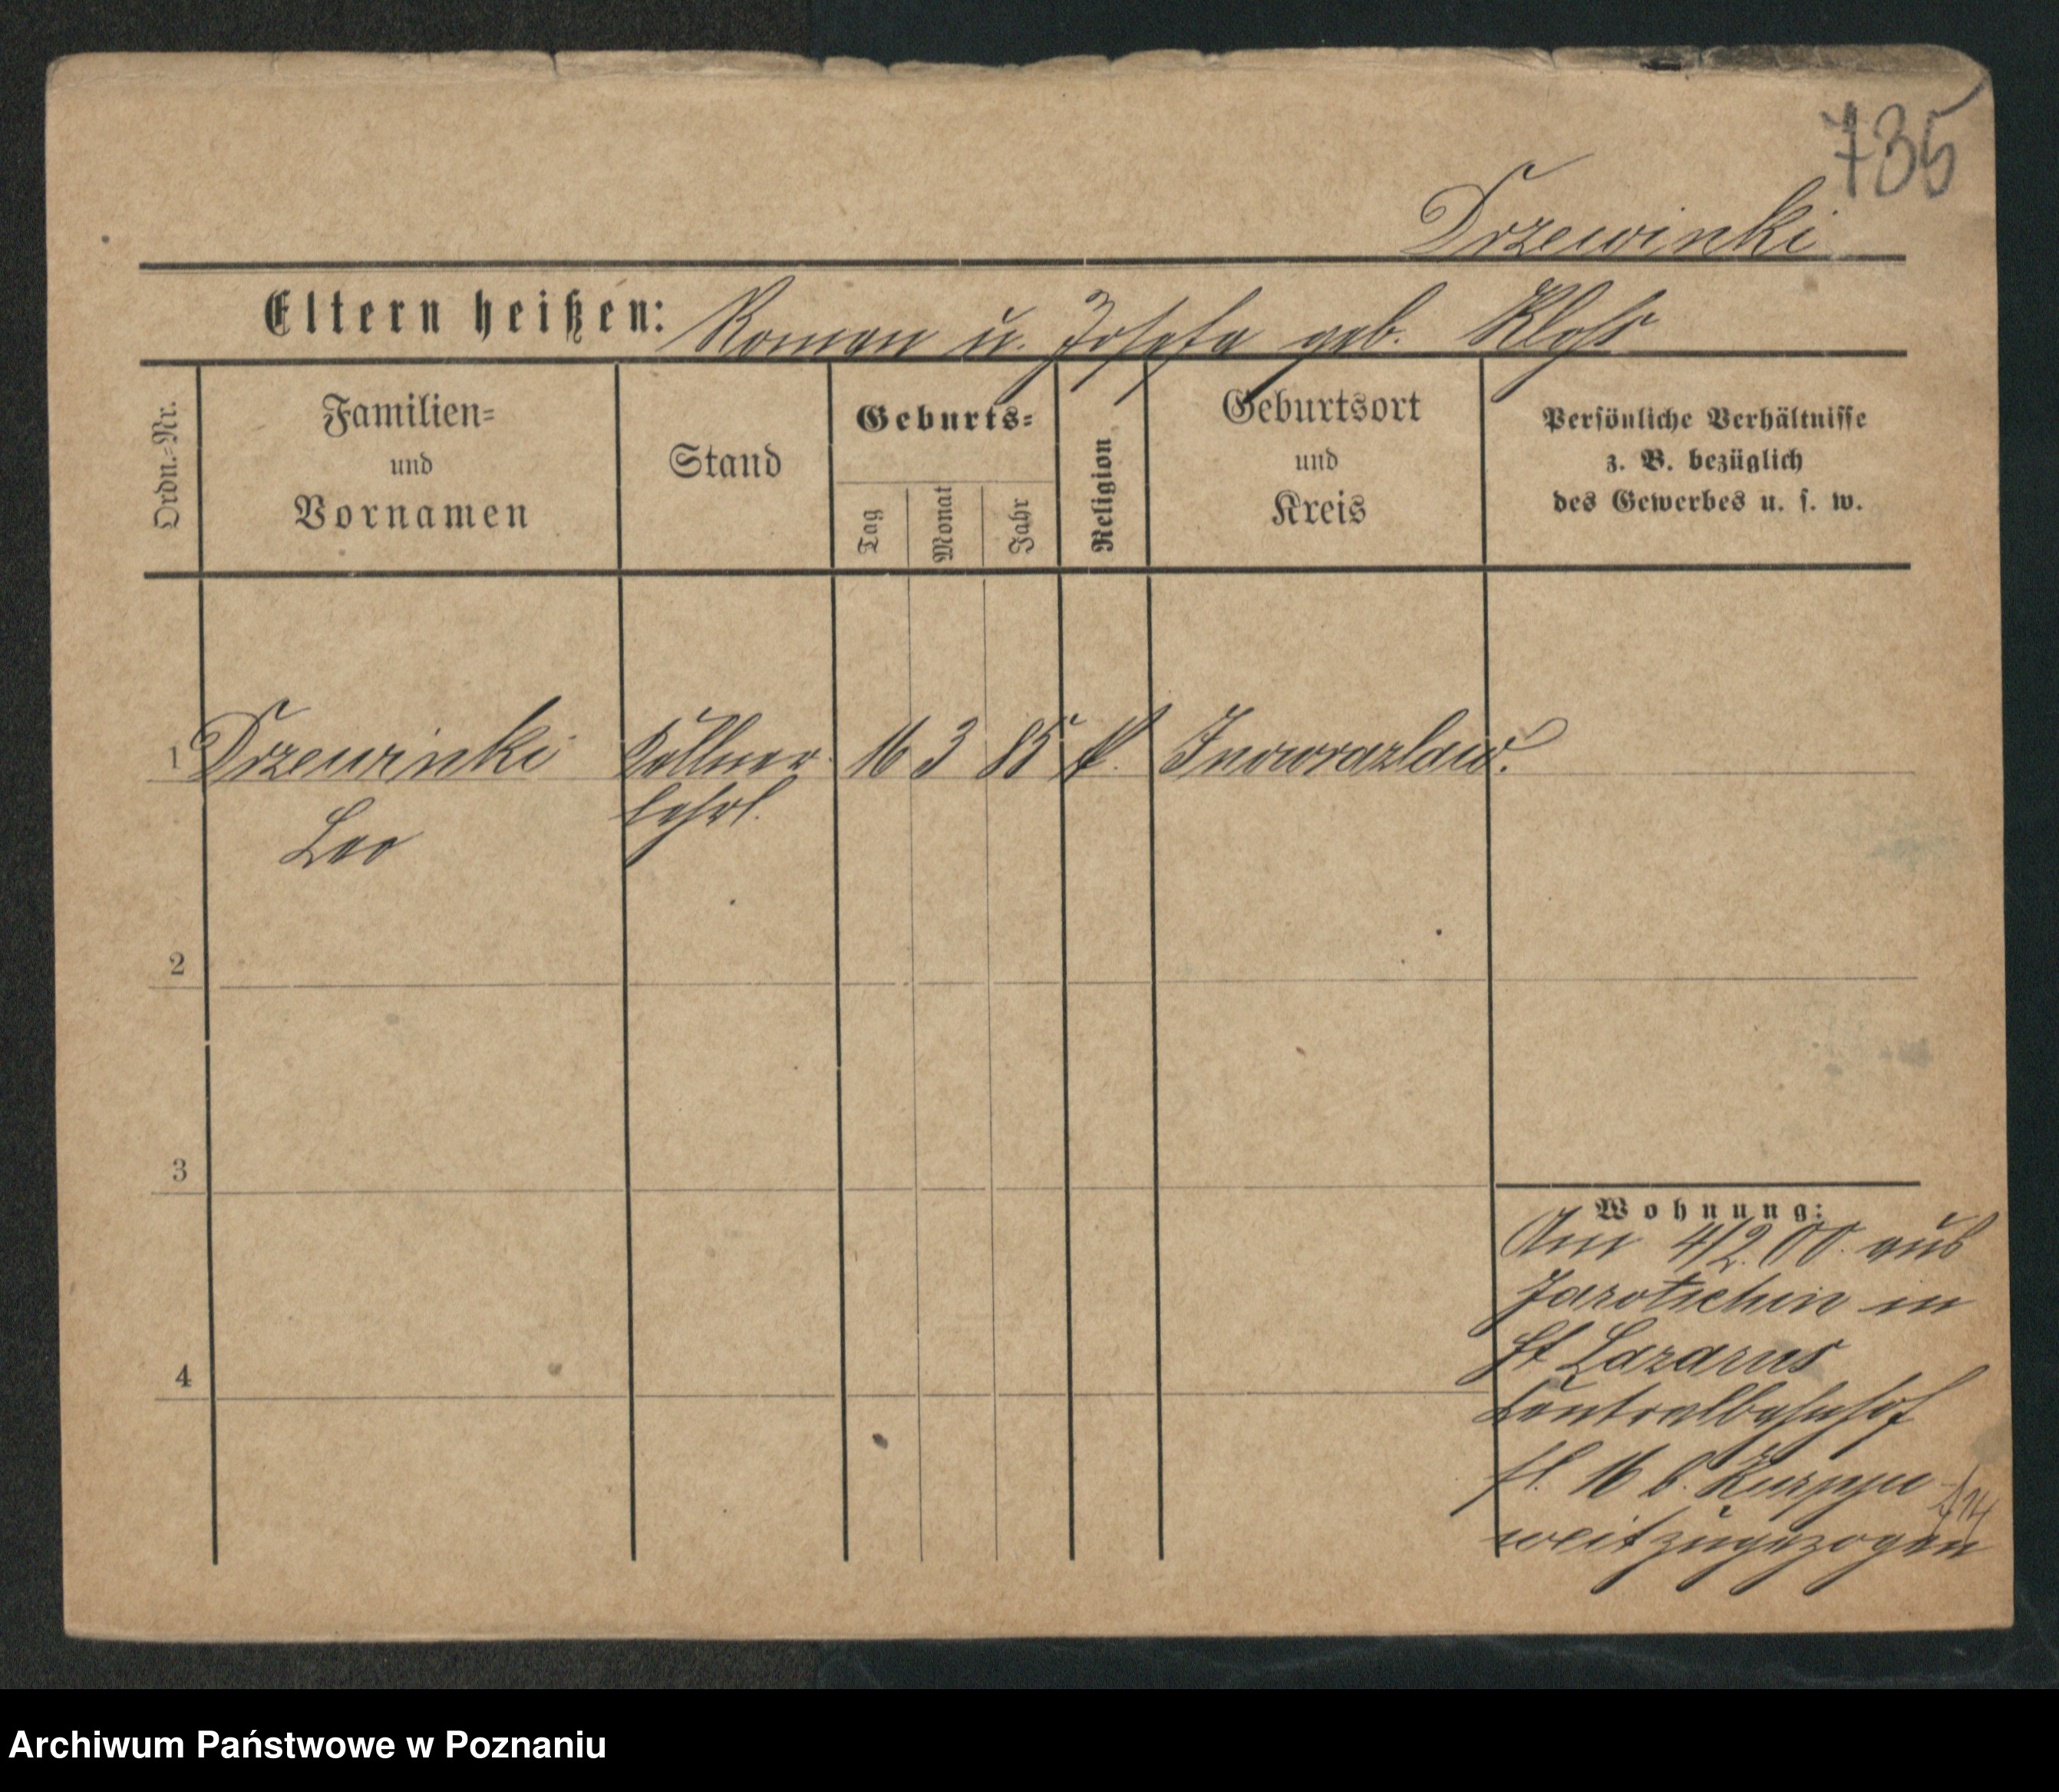 735
Drzewinski
Eltern heißen: Roman u. Josefa geb. Kloss
Ordn.=Nr.
Familien=
und
Vornamen
Stand
Geburts=
Tag
Monat
Jahr
Religion
Geburtsort
und
Kreis
Persönliche Verhältnisse
z. B. bezüglich
des Gewerbes u. s. w.
1 Drzewinski Kellner 16 3 85 k. Inowrazlaw.
Leo lehrl.
2
3
4
Wohnung:
Am 4/2.00. aus
Jarotschin in
St Lazarus
Centralbahnhof
16 b.
zugezogen
Archiwum Państwowe w Poznaniu